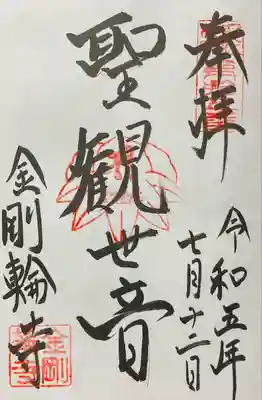 奉拝
令和五年
七月十二日
聖観世音
金剛輪寺
金剛
輪寺